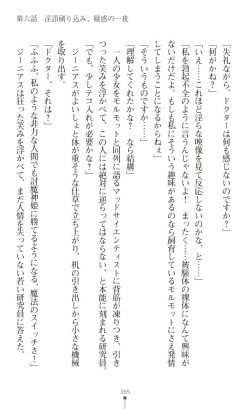 第六話 淫語刷り込み、疑惑の一夜
「失礼ながら、ドクターは何も感じないのですか?」
「何がかね?」
「いえ……これほど淫らな映像を見て反応しないのか、と……」
「私を勃起不全のように言うんじゃないよ。まったく……被験体の裸体になんて興味が
ないだけだよ。もしも私にそういう趣味があるのなら飼育しているモルモットにさえ発情
してしまうことになるからねぇ」
「そういうものですか……」
「理解してくれたかな? なら結構」
一人の少女をモルモットと同列に語るマッドサイエンティストに背筋が凍りつき、引き
つった笑みを浮かべて、この人には絶対に逆らってはならない、と本能に刻まれる研究員。
「でも、少しテコ入れが必要かな?」
ジーニアスがよいしょと体が重そうな仕草で立ち上がり、机の引き出しから小さな機械
を取り出す。
「ドクター、それは?」
「ふふふ、私のような非力な人間でも討魔神姫に勝てるようになる、魔法のスイッチさ!」
ジーニアスは狂った笑みを浮かべて、まだ人情を失っていない若い研究員に答えた。
365